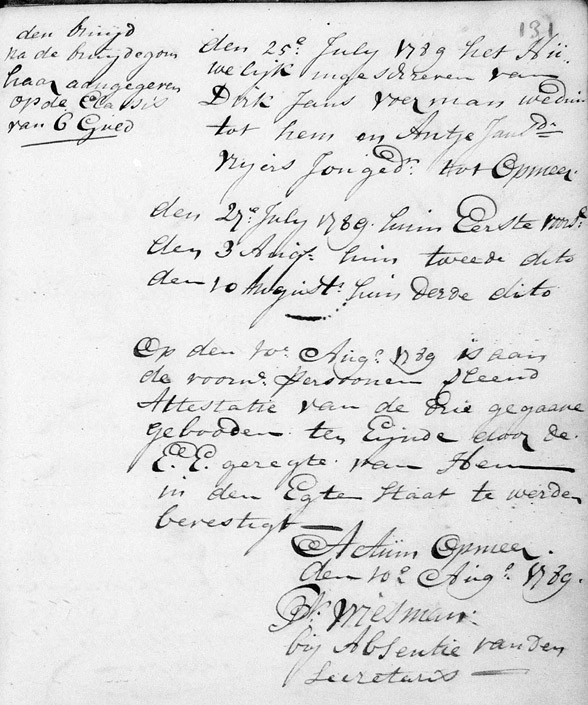 131
den bruijd
na de bruijdegom
haar aangegeven
op de Classis
van 6 Gued
den 25e July 1789 het Hu:
welijk ingeschreven van
Dirk Jans Veerman weduw
tot hem en Antje Jansdr
Nijers Jongedr. tot Opmeer.
den 27e July 1789. huin Eerste voorst.
den 3 Augs. huin tweede dito
den 10 Augustr. huin derde dito
Op den 10e Auge 1789 is aan
de voorne. Persoonen fleend
Attestatie van de drie gegaane
Gebooden ten Eijnde door de
E:E: geregte van Hem
in den Egten staat te werden
bevestigt
Actum Opmeer.
den 10e Auge 1789.
Pr. Wiesman
bij Absentie van den
Secretaris